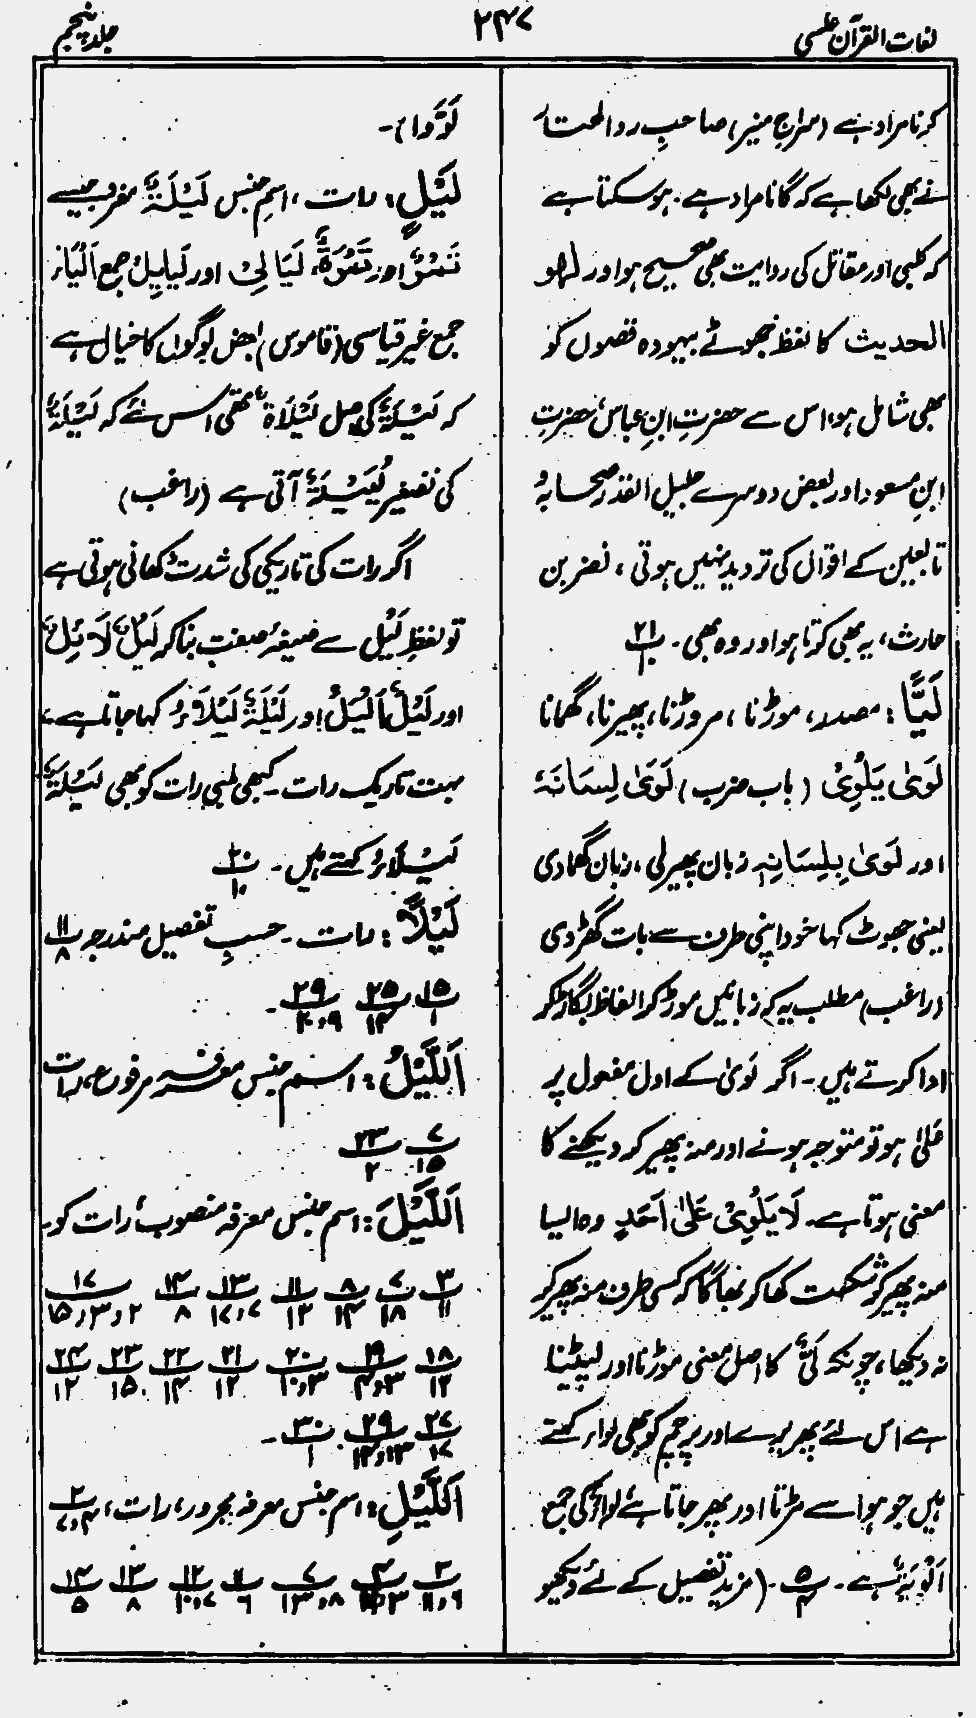 لغات القرآن علسی
۲۴۷
جلد پنجم
کرنا مراد ہے (سراج منیر) صاحبِ رد المحتار
نے بھی لکھا ہے کہ گانا مراد ہے۔ ہوسکتا ہے
کہ کلبی اور مقاتل کی روایت بھی صحیح ہو اور لہو
الحدیث کا لفظ جھوٹے بیہودہ قصوں کو
بھی شامل ہو، اس سے حضرتِ ابنِ عباس، حضرتِ
ابنِ مسعود اور بعض دوسرے جلیل القدر صحابہ و
تابعین کے اقوال کی تردید نہیں ہوتی، نضر بن
حارث، یہ بھی کرتا ہو اور وہ بھی۔ ۲۱/۱۰
لَیًّا: مصدر، موڑنا، مروڑنا، پھیرنا، گھمانا
لَوَیٰ یَلْوِیْ (باب ضرب) لَوَیٰ لِسَانَہٗ
اور لَوَیٰ بِلِسَانِہٖ زبان پھیر لی، زبان گھما دی
یعنی جھوٹ کہا خود اپنی طرف سے بات گھڑ دی
(راغب) مطلب یہ کہ زبانیں موڑ کر الفاظ بگاڑ کر
ادا کرتے ہیں۔ اگر لَوَیٰ کے اول مفعول پر
عَلیٰ ہو تو متوجہ ہونے اور منہ پھیر کر دیکھنے کا
معنی ہوتا ہے۔ لَا یَلْوِیْ عَلیٰ اَحَدٍ وہ ایسا
منہ پھیر کر شکست کھا کر بھاگا کہ کسی طرف منہ پھیر کر
نہ دیکھا، چونکہ لَیٌّ کا اصل معنی موڑنا اور لپیٹنا
ہے اس لئے پھریرے اور پرچم کو بھی لواء کہتے
ہیں جو ہوا سے مڑتا اور پھر جاتا ہے لواءٌ کی جمع
اَلْوِیَۃٌ ہے۔ ۵/۴۔ (مزید تفصیل کے لئے دیکھو
لَوَّوا)۔
لَیْلٍ: رات، اسمِ جنس لَیْلَۃٌ مفرد جیسے
تَمْرٌ اور تَمْرَۃٌ، لَیَالِیْ اور لَیَایِلُ جمع اَلْیَاز
جمع غیر قیاسی (قاموس) بعض لوگوں کا خیال ہے
کہ لَیْلَۃٌ کی اصل لَیْلَاۃٌ تھی اس لئے کہ لَیْلَۃٌ
کی تصغیر لُیَیْلَۃٌ آتی ہے (راغب)
اگر رات کی تاریکی کی شدت دکھانی ہوتی ہے
تو لفظِ لَیْل سے صیغۂ صفت بنا کر لَیْلٌ لَائِلٌ
اور لَیْلٌ اَلْیَلُ اور لَیْلَۃٌ لَیْلَاءُ کہا جاتا ہے،
بہت تاریک رات۔ کبھی لمبی رات کو بھی لَیْلَۃٌ
لَیْلَاءُ کہتے ہیں۔ ۳۰/۱۰
لَیْلًا: رات۔ حسبِ تفصیل مندرجہ ۱۱/۸
۱۵/۱ ۲۵/۱۴ ۲۹/۹،۲۰۔
اَللَّیْلُ: اسم جنس معرفہ مرفوع، رات
۷/۱۵ ۲۳/۲
اَللَّیْلَ: اسم جنس معرفہ منصوب، رات کو۔
۳/۱۱ ۷/۱۸ ۸/۱۴ ۱۱/۱۲ ۱۳/۷،۱۷ ۱۴/۸ ۱۷/۲،۳،۱۵
۱۸/۱۲ ۱۹/۳،۴ ۲۰/۳،۱۰ ۲۱/۱۲ ۲۲/۱۴ ۲۳/۱۵ ۲۴/۱۲
۲۷/۱۷ ۲۹/۱۳،۱۴ ۳۰/۱۔
اَللَّیْلِ: اسم جنس معرفہ مجرور، رات، ۲/۴،۷
۳/۹،۱۱ ۴/۳ ۷/۸،۱۳ ۱۱/۶ ۱۲/۷،۱۰ ۱۳/۸ ۱۴/۵